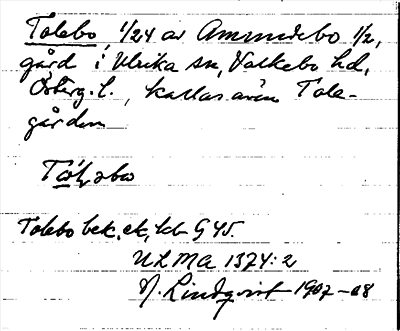 Tolebo, 1/24 av Amundebo 1/2,
gård i Ulrika sn, Valkebo hd,
Österg. l., kallas även Tole-
gården
Tolebo bek. ek, kb G 45
ULMA 1374:2
N. Lindqvist 1907-08